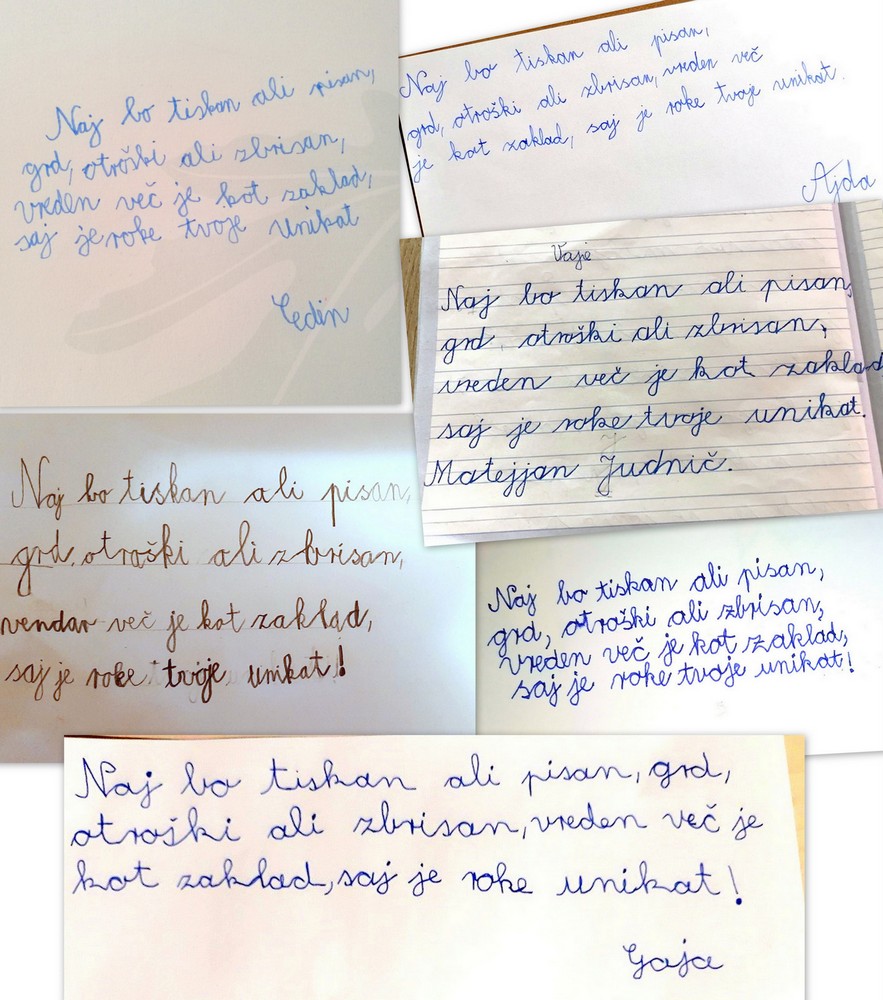 Naj bo tiskan ali pisan,
grd, otroški ali zbrisan,
vreden več je kot zaklad,
saj je roke tvoje unikat
Cedin
Naj bo tiskan ali pisan,
grd, otroški ali zbrisan, vreden več
je kot zaklad, saj je roke tvoje unikat.
Ajda
Vaje
Naj bo tiskan ali pisan,
grd, otroški ali zbrisan,
vreden več je kot zaklad
saj je roke tvoje unikat.
Matejjan Judnič.
Naj bo tiskan ali pisan,
grd, otroški ali zbrisan,
vendar več je kot zaklad,
saj je roke tvoje unikat!
Naj bo tiskan ali pisan,
grd, otroški ali zbrisan,
vreden več je kot zaklad,
saj je roke tvoje unikat!
Naj bo tiskan ali pisan, grd,
otroški ali zbrisan, vreden več je
kot zaklad, saj je roke unikat!
Gaja